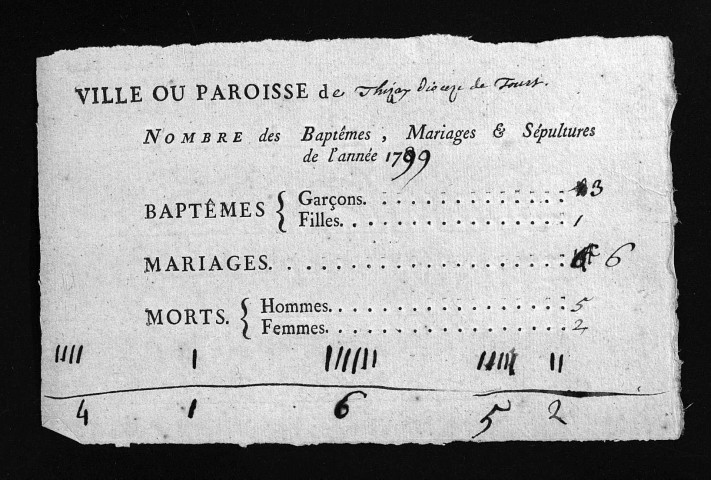 VILLE OU PAROISSE de Thizay Dioceze de Tours.
NOMBRE des Baptêmes, Mariages & Sépultures
de l'année 1789
BAPTÊMES { Garçons. 3
Filles. 1
MARIAGES. 6
MORTS. { Hommes. 5
Femmes. 2
IIII I IIIIII IIIII II
4 1 6 5 2